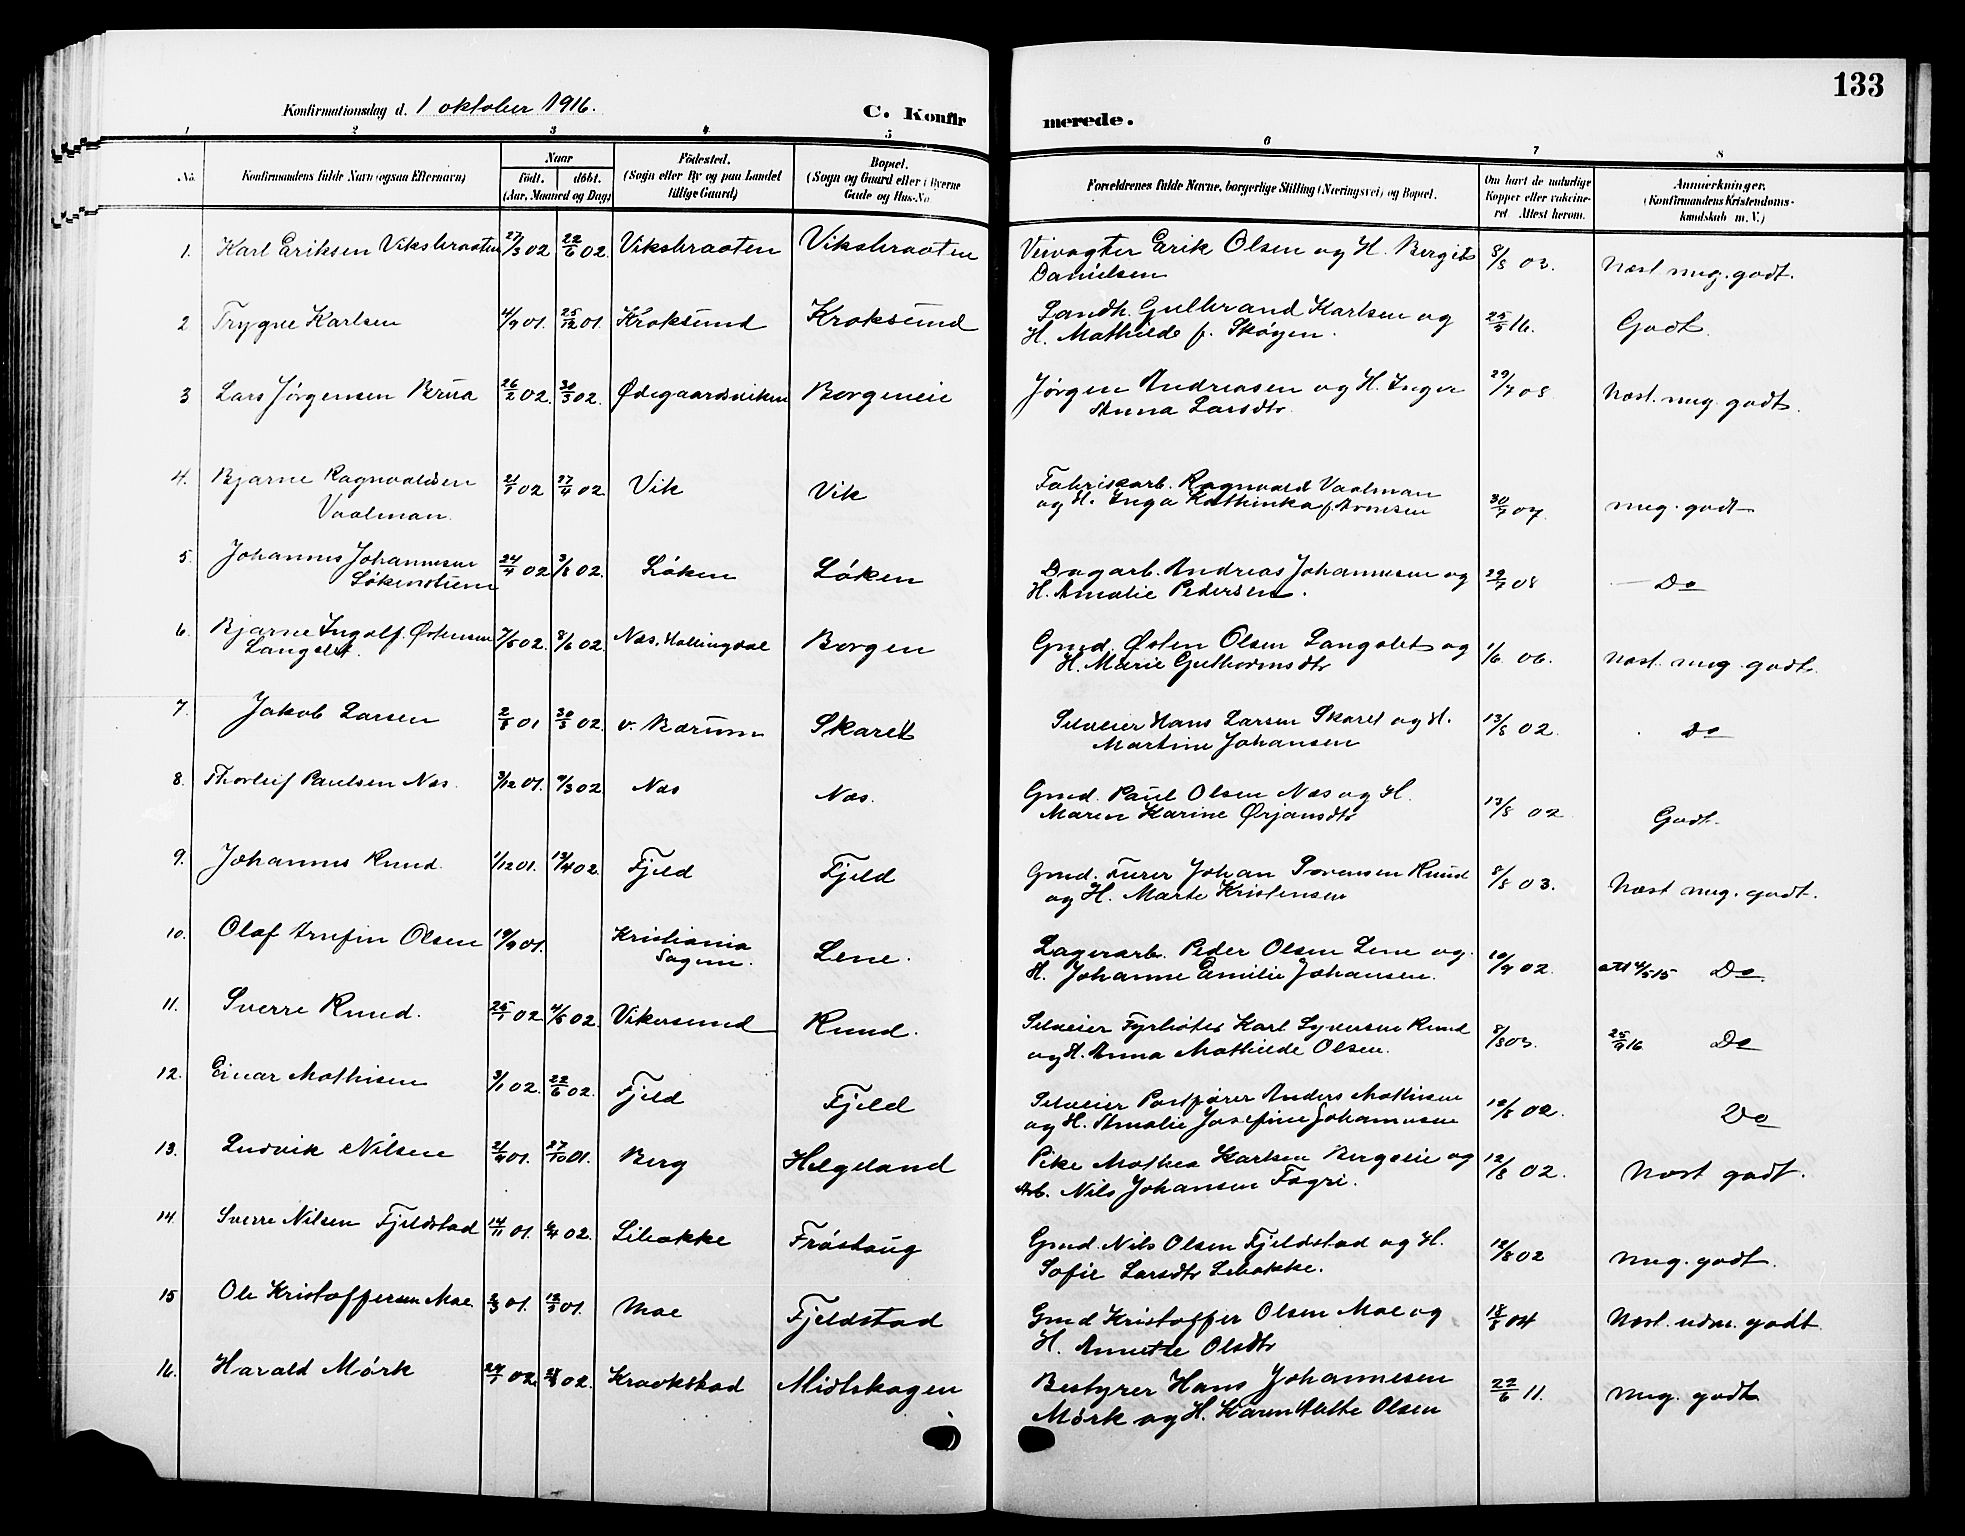 133
Konfirmationsdag d. 1 oktober 1916.
C. Konfir merede.
1 2 3 4 5 6 7 8
No.
Konfirmandens fulde Navn (ogsaa Efternavn)
Naar
født. døbt.
(Aar, Maaned og Dag)
Fødested.
(Sogn eller By og paa Landet
tillige Gaard)
Bopæl.
(Sogn og Gaard eller i Byerne
Gade og Hus-No.
Forældrenes fulde Navne, borgerlige Stilling (Næringsvei) og Bopæl.
Om havt de naturlige
Kopper eller vakcine-
ret. Attest herom.
Anmærkninger.
(Konfirmandens Kristendoms-
kundskab m. V.)
1. Karl Eriksen Viksbraaten 27/3 02 22/6 02. Viksbraaten Viksbraaten Veivogter Erik Olsen og H. Bergit 8/8 03. Næst meg. godt.
Danielsen
2 Trygve Karlsen 4/9 01. 25/12 01. Kroksund Kroksund Landh. Gulbrand Karlsen og 25/9 16. Godt.
H. Mathilde f. Skogen.
3 Lars Jørgensen Brua 26/2 02. 30/3 02. Ødegaardsviken Borgeneie Jørgen Andreasen og H. Inger 29/7 08 Næst. meg. godt.
Anna Larsdtr.
4. Bjarne Ragnvaldsen 27/4 02 Vik Vik Fabrikarb. Ragnvald Vaalman 30/7 07. meg. godt
Vaalman. og H. Inga Kathinka f. Aronsen
5. Johannes Johannesen 24/4 02 3/8 02. Løken Løken Dagarb. Andreas Johannesen og 29/7 08 Do
Løkenstuen H. Amalie Pedersen.
6. Bjarne Ingolf Østensen 7/5 02. 8/6 02. Næs, Hallingdal Borgen Gmd. Østen Olsen Langslet og 1/6 06. Næst. meg. godt.
Langslet. H. Marie Guthormsdtr
7. Jakob Larsen 2/8 01 30/3 02. V. Bærum Skaret Selveier Hans Larsen Skaret og H. 13/8 02. Do
Martine Johansen
8. Thorleif Paulsen Næs. 3/12 01. 9/3 02 Næs Næs. Gmd. Paul Olsen Næs og H. 13/8 02 Godt.
Maren Karine Ørjansdtr
9. Johannes Rund. 1/12 01. 13/4 02. Fjeld Fjeld Gmd. Furer Johan Sørensen Rund 8/8 03. Næst meg. godt.
og H. Marte Kristensen
10. Olaf Arnfin Olsen 19/9 01. Kristiania Lene. Lagerarb. Peder Olsen Lene og 10/9 02. Do.
Sagene. H. Johanne Emilie Johansen.
11. Sverre Rund. 25/1 02 4/5 02. Vikersund Rund. Selveier Fyrbøter Karl Syversen Rund 8/8 03. 25/9 16 Do
og H. Anna Mathilde Olsen.
12. Einar Mathisen 3/1 02. 22/6 02. Fjeld Fjeld Selveier Postfører Anders Mathisen 12/8 02. Do
og H. Amalie Josefine Johannesen
13. Ludvik Nilsen 21/9 01. 27/10 01. Berg Helgeland Pike Mathea Karlsen Bergseie og 12/8 02. Næst godt.
Arb. Nils Johansen Fagri.
14. Sverre Nilsen Fjeldstad 14/11 01. 6/4 02. Libakke Frøshaug Gmd. Nils Olsen Fjeldstad og H. 12/8 02 meg. godt.
Sofie Larsdtr Libakke.
15 Ole Kristoffersen Moe 2/3 01. Moe Fjeldstad Gmd Kristoffer Olsen Moe og 18/8 04 Næst. udm. godt
H. Annette Olsdtr
16. Harald Mørk 02. 02. Kraakstad Midtskogen Bestyrer Hans Johannesen 22/6 11. meg. godt
Mørk og H. Karen Olsen